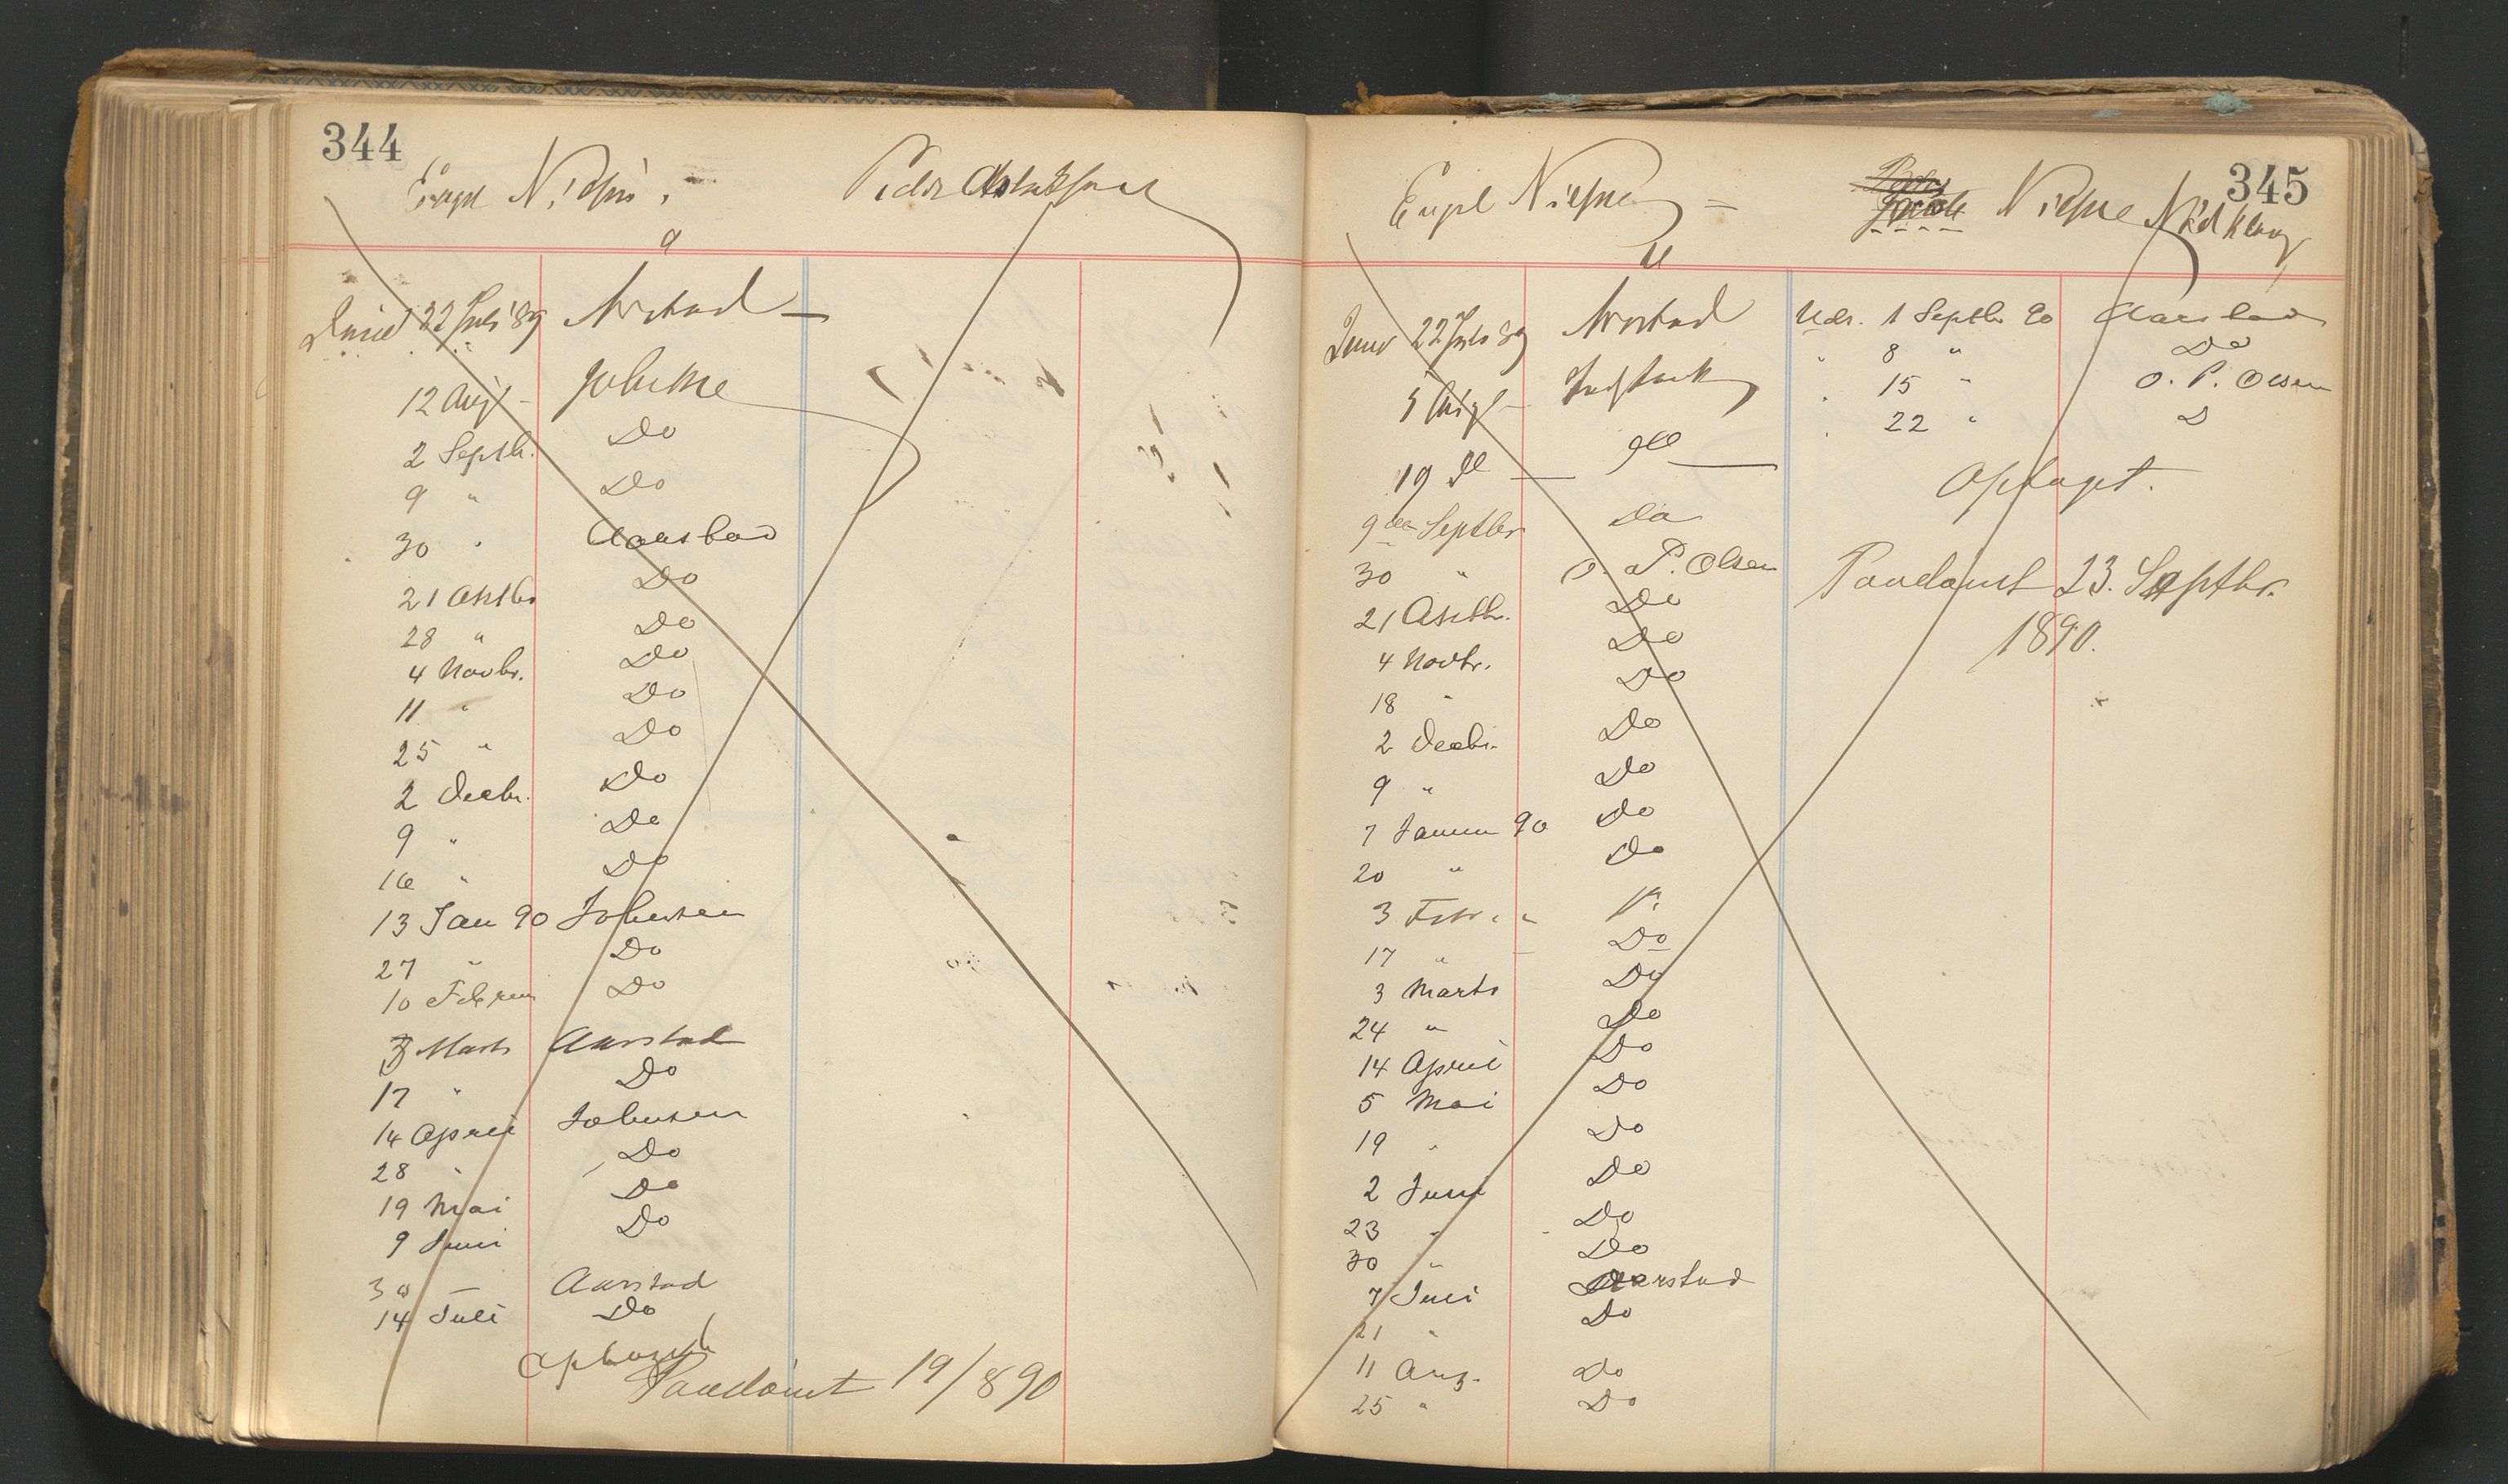 344
Engel Nielsen. Peder Aslaksen
a
22 Juli '89 Aarstad
12 Augt Johnsen
2 Septb. Do
9 " Do
30 " Aarstad
21 Octbr Do
28 " Do
4 Novbr. Do
11 " Do
25 " Do
2 Decbr. Do
9 " Do
16 " Do
13 Jan 90 Johnsen
27 " Do
10 Februar Do
3 Marts Aarstad
17 " Do
14 April Johnsen
28 " Do
19 Mai Do
9 Juni Do
30 — Aarstad
14 Juli Do
Optaget
Paadømt 19/8 90
345
Engel Nielsen = Jacob Nielsen
22 Juli 89 Aarstad
5 Augt
19 do do
9de Septbr Do
30 " O. P. Olsen
21 Octbr. Do
4 Novbr. Do
18 " Do
2 Decbr. Do
9 " Do
7 Januar 90 Do
20 " Do
3 Febr. "
17 " Do
3 Marts Do
24 " Do
14 April Do
5 Mai Do
19 " Do
2 Juni Do
23 " Do
30 " Do
7 Juli Aarstad
21 " Do
11 Aug. Do
25 " Do
Uds. 1 Septbr 90 Aarstad
" 8 " Do
" 15 " O. P. Olsen
" 22 " D
Optaget.
Paadømt 23. Septbr.
1890.